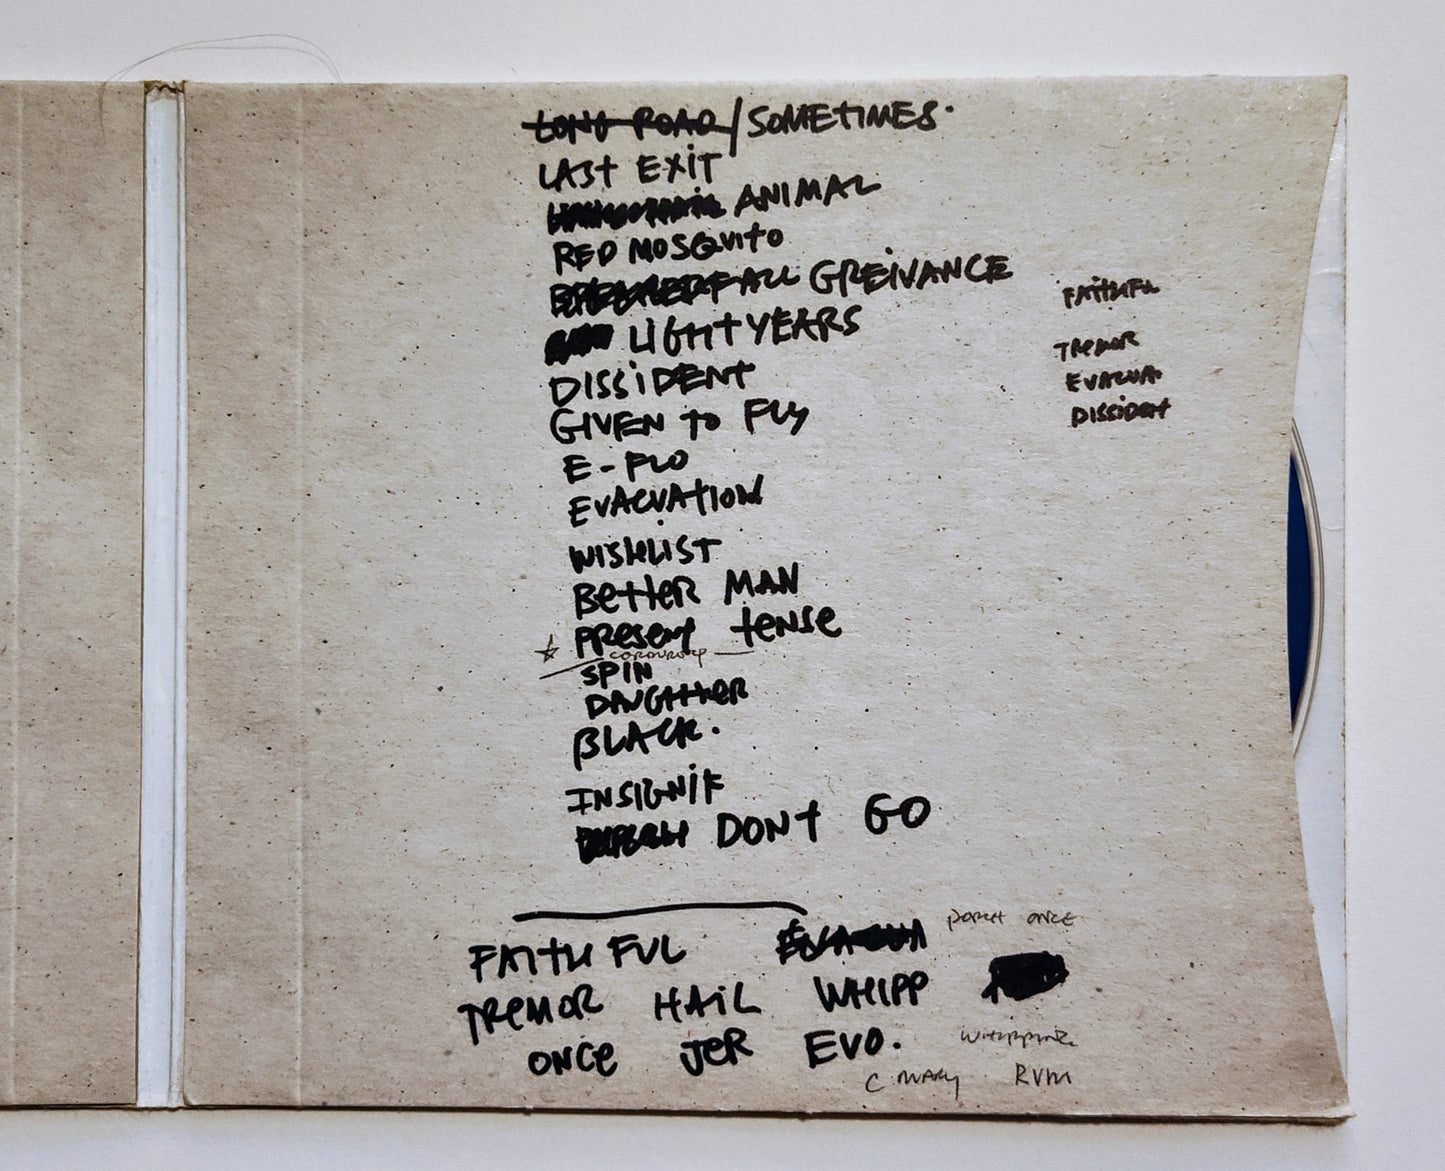 LONG ROAD / SOMETIMES.
LAST EXIT
ANIMAL
RED MOSQUITO
BREAKERFALL GREIVANCE
FAITHFUL
LIGHT YEARS
TREMOR
DISSIDENT
EVACUA.
GIVEN TO FLY
DISSIDENT
E-FLO
EVACUATION
WISHLIST
BETTER MAN
PRESENT TENSE
CORDUROY
SPIN
DAUGHTER
BLACK.
INSIGNIF
DONT GO
FAITHFUL EVACUA PORCH ONCE
TREMOR HAIL WHIPP
ONCE JER EVO. WHIPPING
C MARY RVM